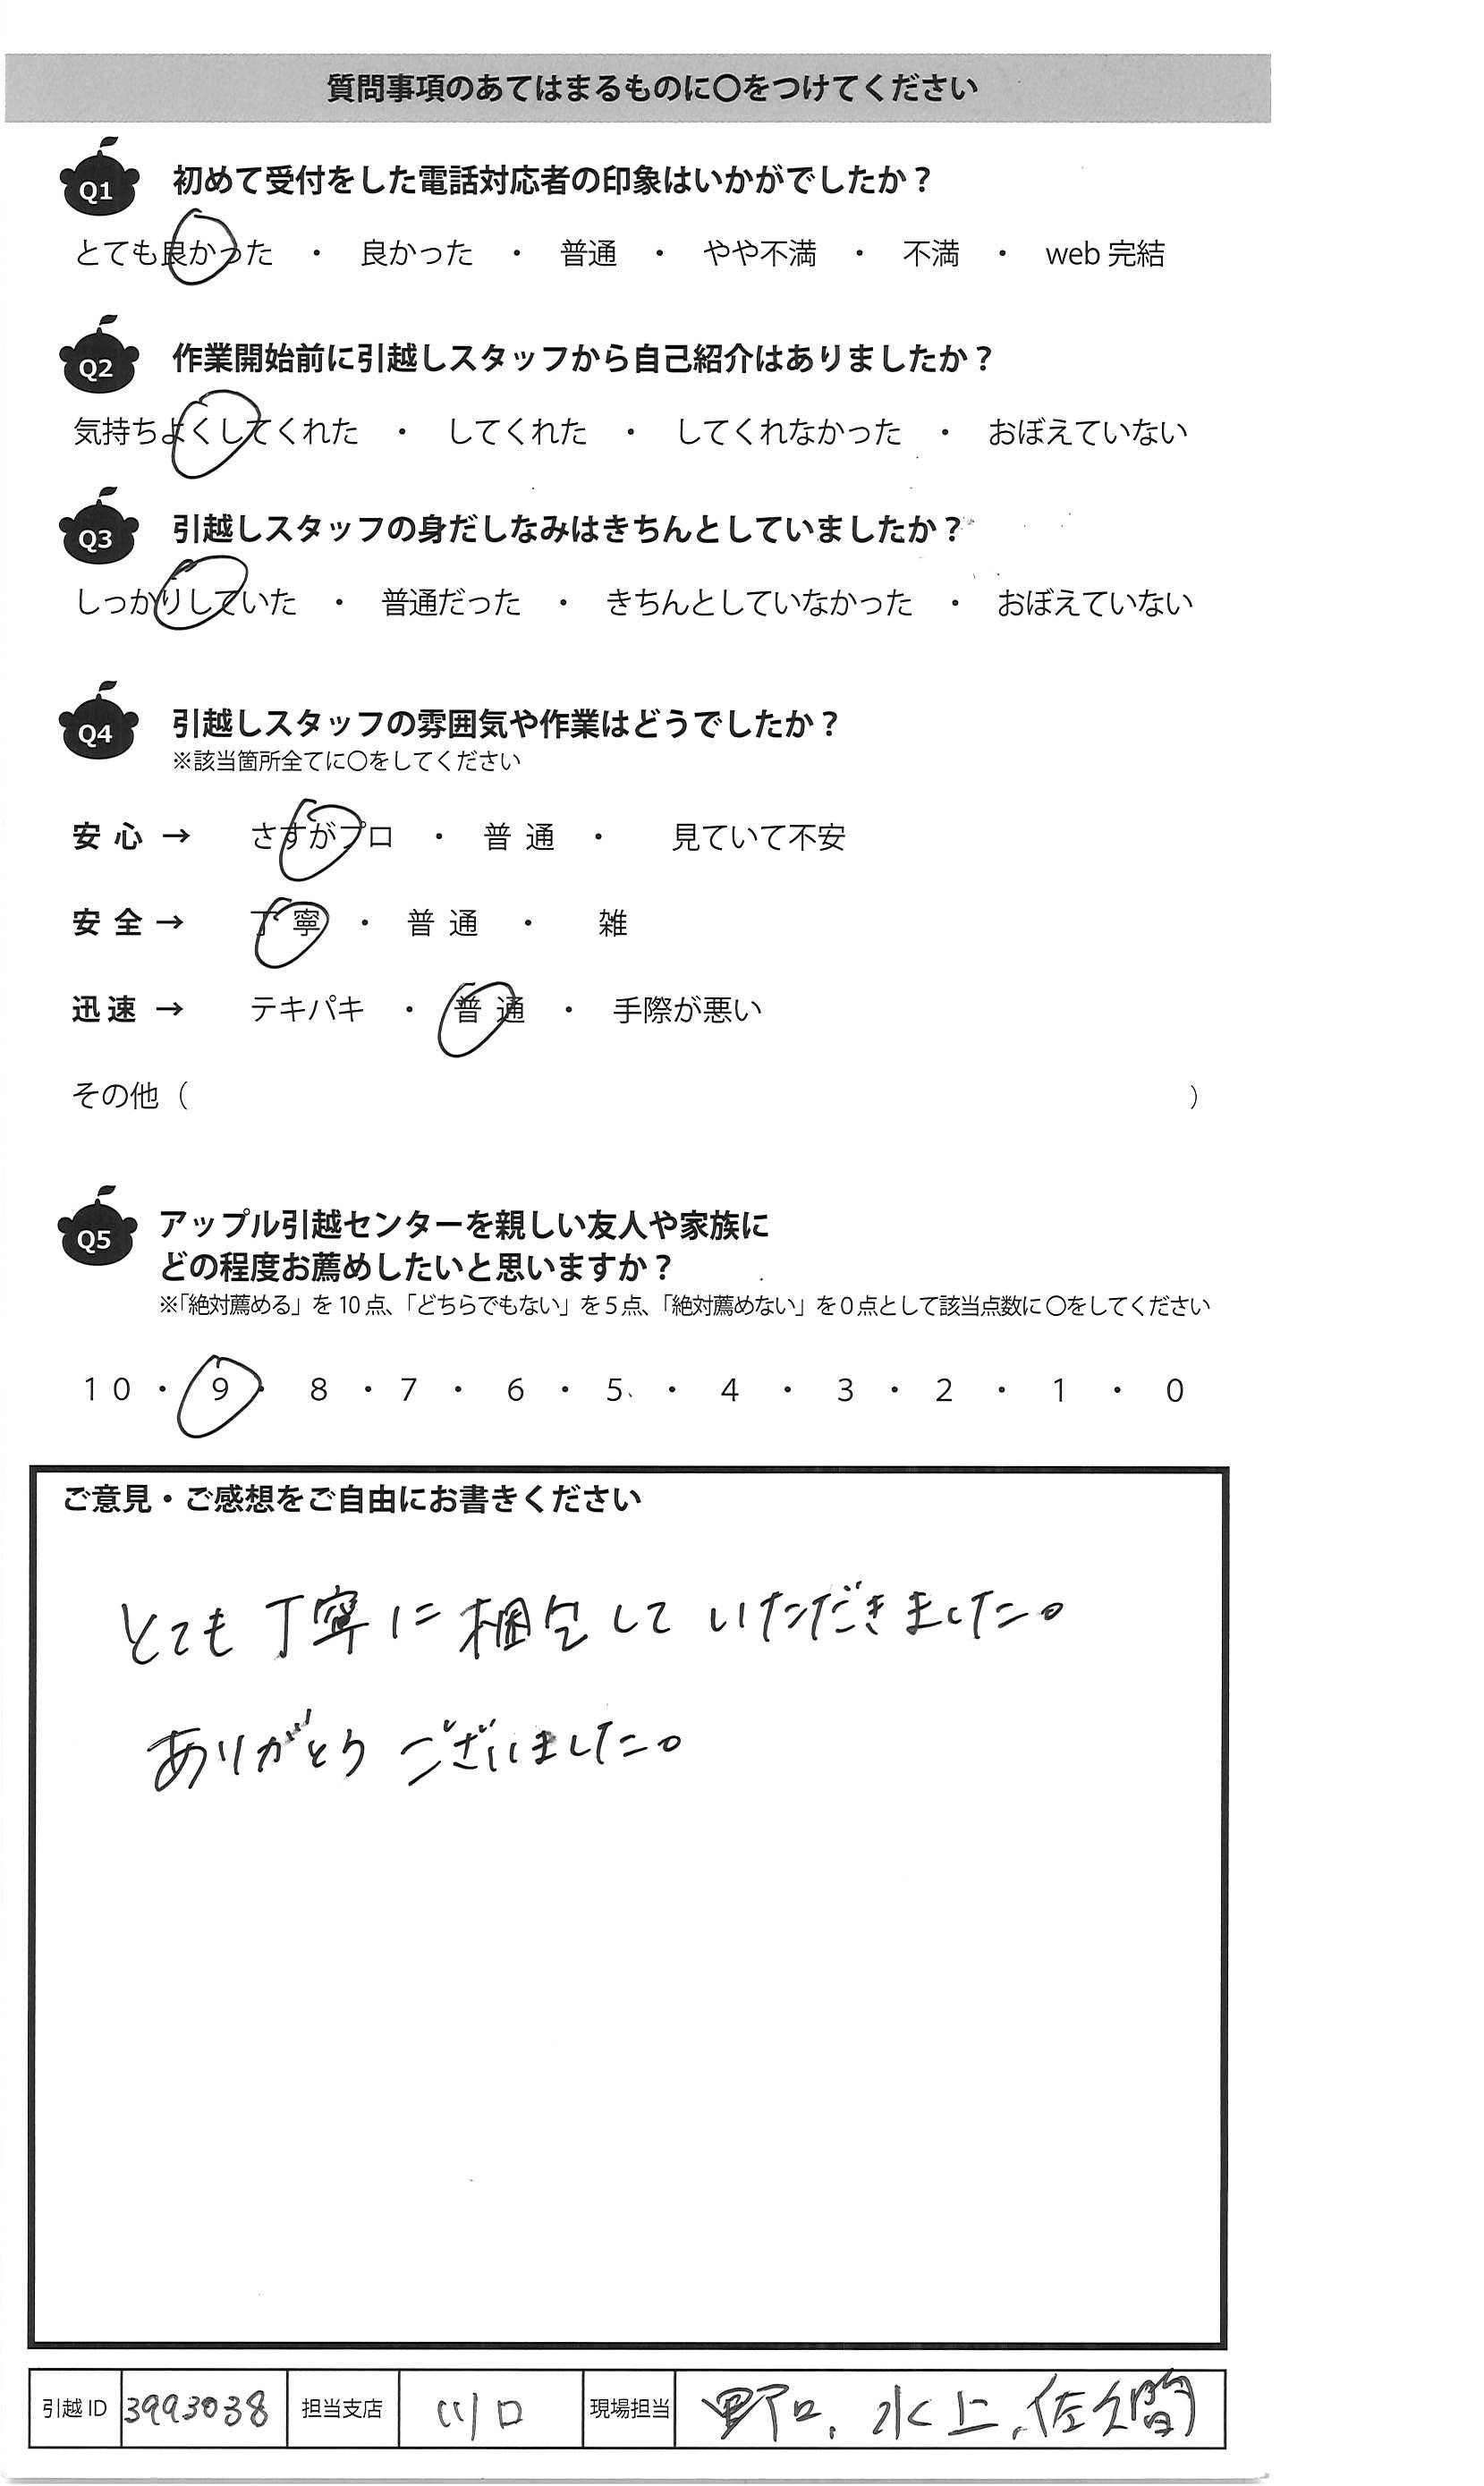 質問事項のあてはまるものに〇をつけてください
Q1 初めて受付をした電話対応者の印象はいかがでしたか？
とても良かった ・ 良かった ・ 普通 ・ やや不満 ・ 不満 ・ web 完結
Q2 作業開始前に引越しスタッフから自己紹介はありましたか？
気持ちよくしてくれた ・ してくれた ・ してくれなかった ・ おぼえていない
Q3 引越しスタッフの身だしなみはきちんとしていましたか？
しっかりしていた ・ 普通だった ・ きちんとしていなかった ・ おぼえていない
Q4 引越しスタッフの雰囲気や作業はどうでしたか？
※該当箇所全てに〇をしてください
安心 → さすがプロ ・ 普通 ・ 見ていて不安
安全 → 丁寧 ・ 普通 ・ 雑
迅速 → テキパキ ・ 普通 ・ 手際が悪い
その他（ ）
Q5 アップル引越センターを親しい友人や家族に
どの程度お薦めしたいと思いますか？
※「絶対薦める」を 10 点、「どちらでもない」を 5 点、「絶対薦めない」を 0 点として該当点数に 〇をしてください
10 ・ 9 ・ 8 ・ 7 ・ 6 ・ 5 ・ 4 ・ 3 ・ 2 ・ 1 ・ 0
ご意見・ご感想をご自由にお書きください
とても丁寧に梱包していただきました。
ありがとうございました。
引越 ID 3993038 担当支店 川口 現場担当 野口、水上、佐久間